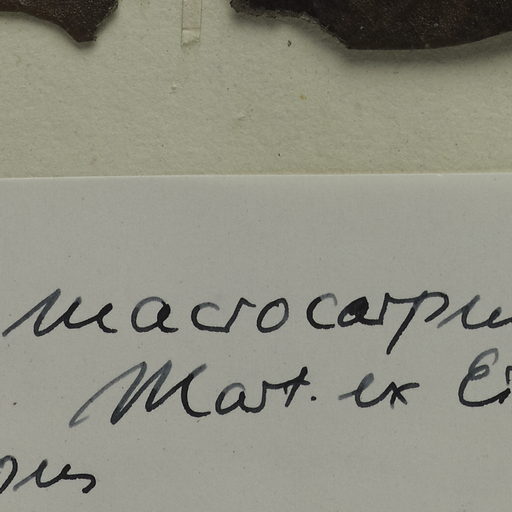 macrocarpu
Mart. ex Ei
ous